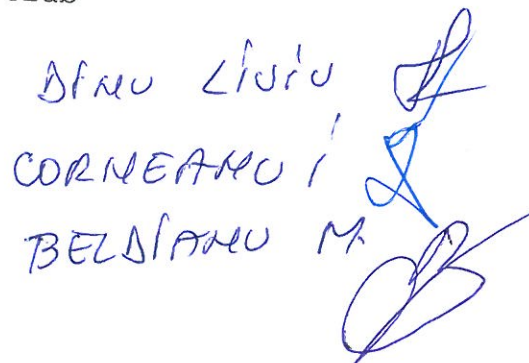 DINU LIVIU
CORNEANU I
BELDIANU M.